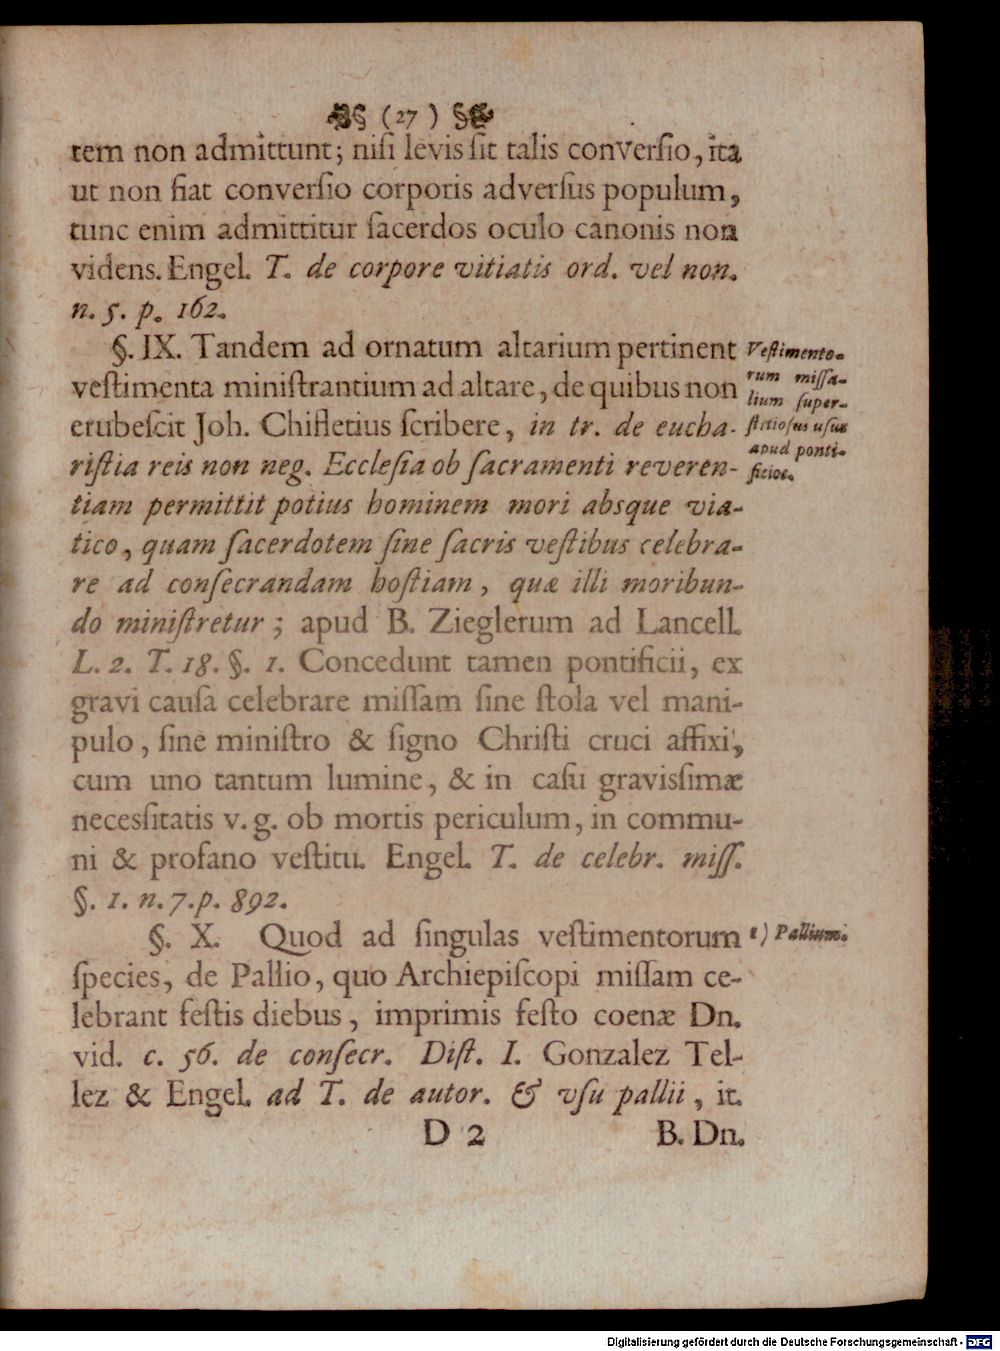 (27)
tem non admittunt; niſi levis ſit talis converſio, ita
ut non fiat converſio corporis adverſus populum,
tunc enim admittitur ſacerdos oculo canonis non
videns. Engel. T. de corpore vitiatis ord. vel non.
n. 5. p. 162.
§. IX. Tandem ad ornatum altarium pertinent
veſtimenta miniſtrantium ad altare, de quibus non
erubeſcit Joh. Chifletius ſcribere, in tr. de eucha-
riſtia reis non neg. Eccleſia ob ſacramenti reveren-
tiam permittit potius hominem mori absque via-
tico, quam ſacerdotem ſine ſacris veſtibus celebra-
re ad conſecrandam hoſtiam, quæ illi moribun-
do miniſtretur; apud B. Zieglerum ad Lancell.
L. 2. T. 18. §. 1. Concedunt tamen pontificii, ex
gravi cauſa celebrare miſſam ſine ſtola vel mani-
pulo, ſine miniſtro & ſigno Chriſti cruci affixi,
cum uno tantum lumine, & in caſu gravisſimæ
necesſitatis v. g. ob mortis periculum, in commu-
ni & profano veſtitu. Engel. T. de celebr. miſſ.
§. 1. n. 7. p. 892.
Veſtimento-
rum miſſa-
lium ſuper-
ſtitioſus uſus
apud ponti-
ficios.
§. X. Quod ad ſingulas veſtimentorum
ſpecies, de Pallio, quo Archiepiſcopi miſſam ce-
lebrant feſtis diebus, imprimis feſto coenæ Dn.
vid. c. 56. de conſecr. Diſt. I. Gonzalez Tel-
lez & Engel. ad T. de autor. & vſu pallii, it.
1) Pallium.
D 2 B. Dn.
Digitalisierung gefördert durch die Deutsche Forschungsgemeinschaft - DFG